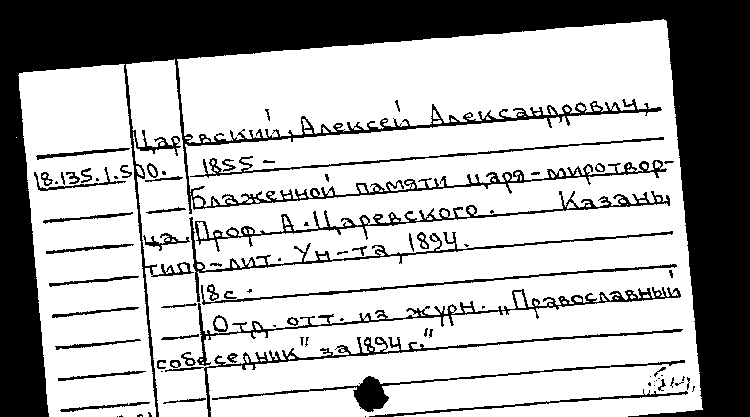 Царевский, Алексей Александрович,
18.135.1.500. 1855 –
Блаженной памяти царя-миротвор-
ца. Проф. А. Царевского. Казань,
типо-лит. Ун-та, 1894.
18с.
„Отд. отт. из журн. „Православный
собеседник" за 1894 г."